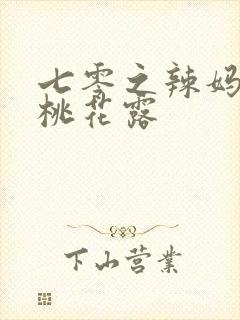 七零之辣妈
桃花露
下山营业